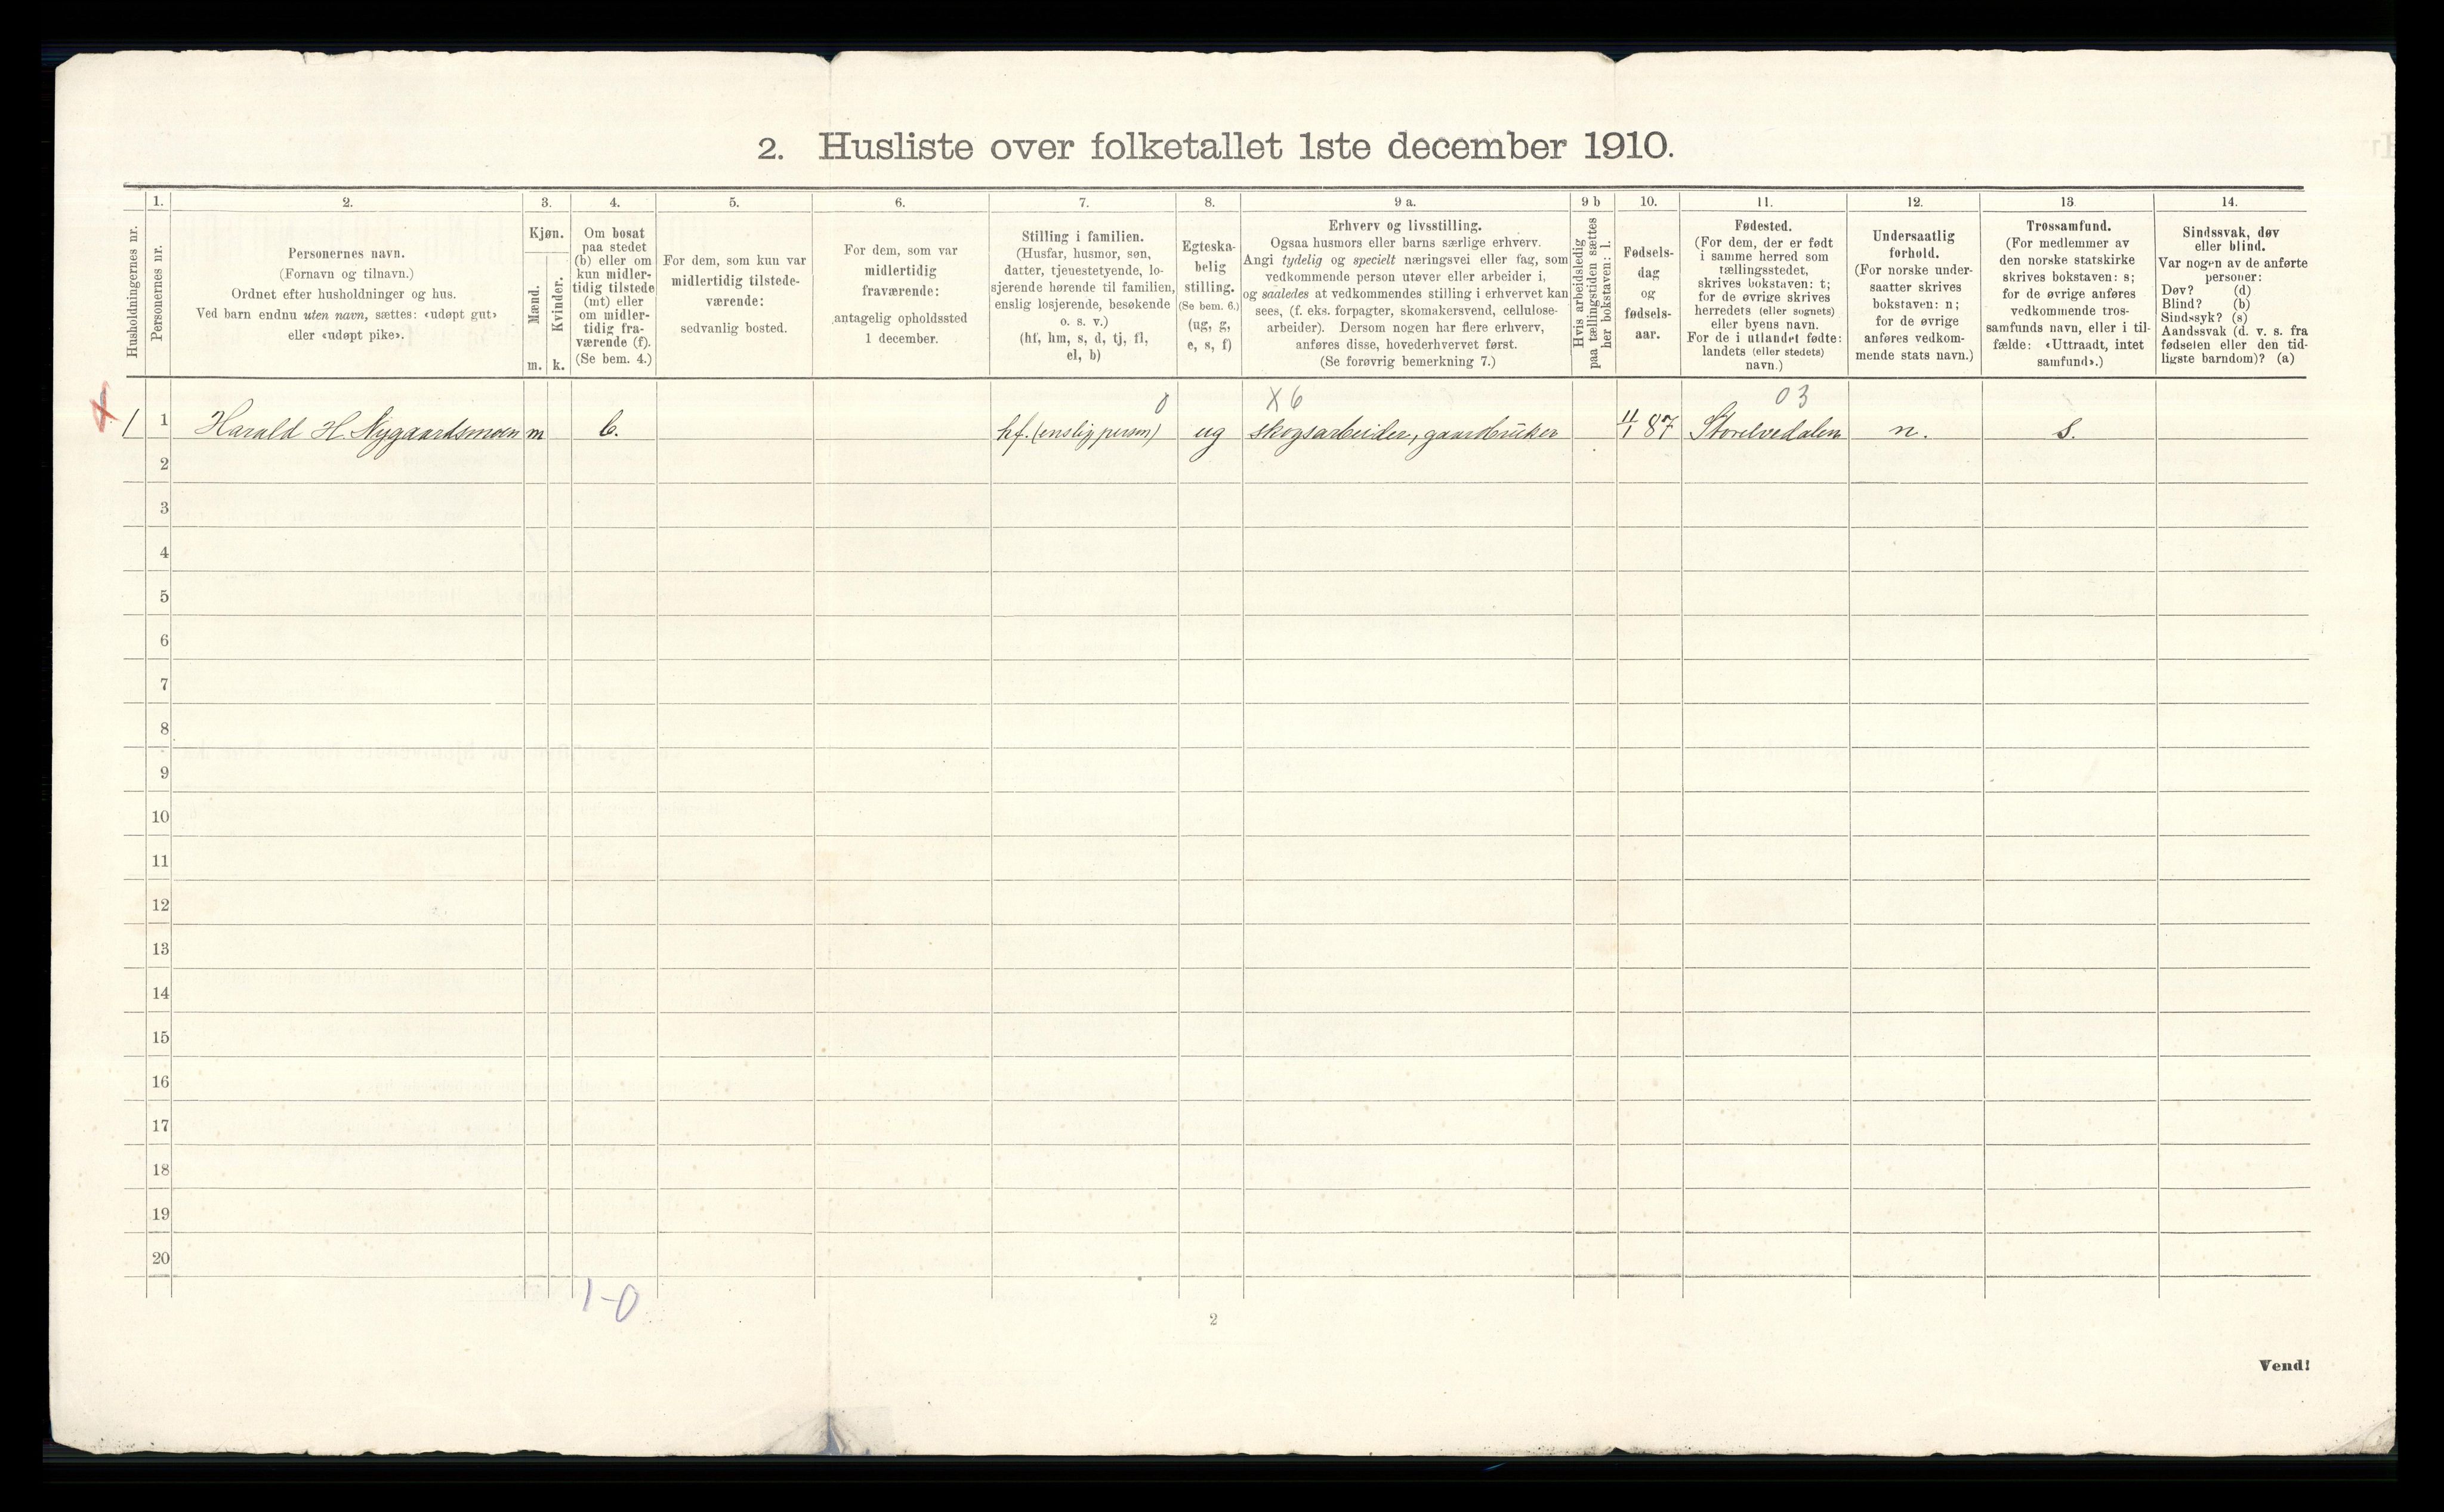 2. Husliste over folketallet 1ste december 1910.
Husholdningernes nr.
1.
Personernes nr.
2.
Personernes navn.
(Fornavn og tilnavn.)
Ordnet efter husholdninger og hus.
Ved barn endnu uten navn, sættes: «udøpt gut»
eller «udøpt pike».
3.
Kjøn.
Mænd.
m.
Kvinder.
k.
4.
Om bosat
paa stedet
(b) eller om
kun midler-
tidig tilstede
(mt) eller
om midler-
tidig fra-
værende (f).
(Se bem. 4.)
5.
For dem, som kun var
midlertidig tilstede-
værende:
sedvanlig bosted.
6.
For dem, som var
midlertidig
fraværende:
antagelig opholdssted
1 december.
7.
Stilling i familien.
(Husfar, husmor, søn,
datter, tjenestetyende, lo-
sjerende hørende til familien,
enslig losjerende, besøkende
o. s. v.)
(hf, hm, s, d, tj, fl,
el, b)
8.
Egteska-
belig
stilling.
(Se bem. 6.)
(ug, g,
e, s, f)
9 a.
Erhverv og livsstilling.
Ogsaa husmors eller barns særlige erhverv.
Angi tydelig og specielt næringsvei eller fag, som
vedkommende person utøver eller arbeider i,
og saaledes at vedkommendes stilling i erhvervet kan
sees, (f. eks. forpagter, skomakersvend, cellulose-
arbeider). Dersom nogen har flere erhverv,
anføres disse, hovederhvervet først.
(Se forøvrig bemerkning 7.)
9 b
Hvis arbeidsledig
paa tællingstiden sættes
her bokstaven: l.
10.
Fødsels-
dag
og
fødsels-
aar.
11.
Fødested.
(For dem, der er født
i samme herred som
tællingsstedet,
skrives bokstaven: t;
for de øvrige skrives
herredets (eller sognets)
eller byens navn.
For de i utlandet fødte:
landets (eller stedets)
navn.)
12.
Undersaatlig
forhold.
(For norske under-
saatter skrives
bokstaven: n;
for de øvrige
anføres vedkom-
mende stats navn.)
13
Trossamfund.
(For medlemmer av
den norske statskirke
skrives bokstaven: s;
for de øvrige anføres
vedkommende tros-
samfunds navn, eller i til-
fælde: «Uttraadt, intet
samfund».)
14.
Sindssvak, døv
eller blind.
Var nogen av de anførte
personer:
Døv? (d)
Blind? (b)
Sindssyk? (s)
Aandssvak (d. v. s. fra
fødselen eller den tid-
ligste barndom)? (a)
0 X 6 03
1 1 Harald H. Nygaardsmoen m b. hf. (enslig person) ug skogsarbeider, gaardbruker 11/1 87 Storelvedalen n. s.
2
3
4
5
6
7
8
9
10
11
12
13
14
15
16
17
18
19
20
1-0
2
Vend!